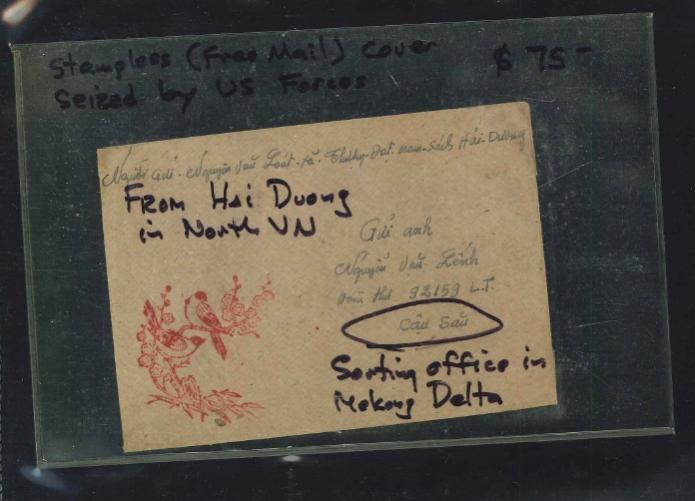 Stampless (Free Mail) cover $ 75-
Seized by US Forces
Người Gửi - Nguyễn Văn Loát. xã. Nam-Sách Hải-Dương
From Hai Duong
in North VN
Gửi anh
Nguyễn Văn Lềnh
Hòm thư 92159 L.T.
Cầu Sấu
Sorting office in
Mekong Delta